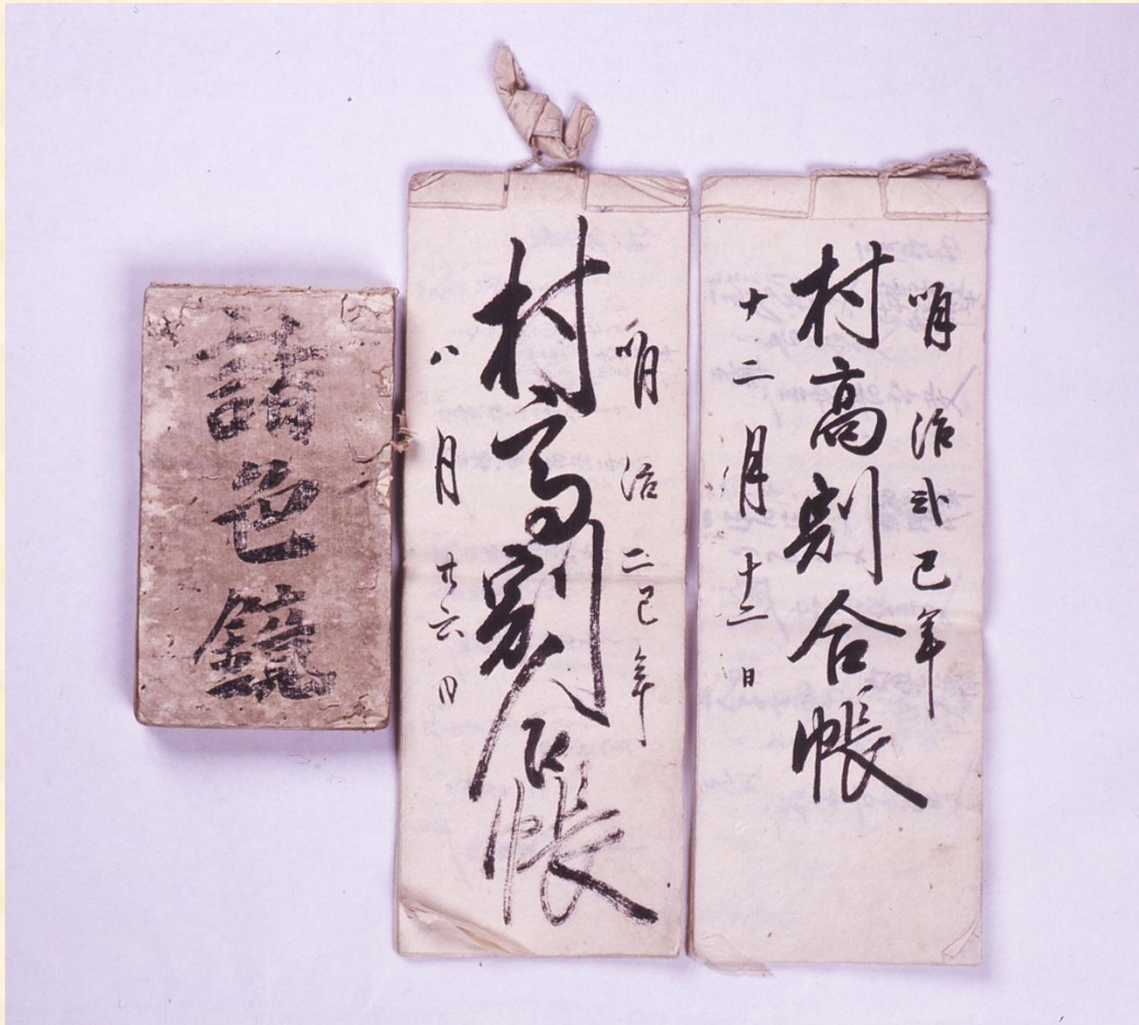 明治弐巳年
村高割合帳
十二月十二日
明治二巳年
村高割合帳
八月廿六日
諸色鏡